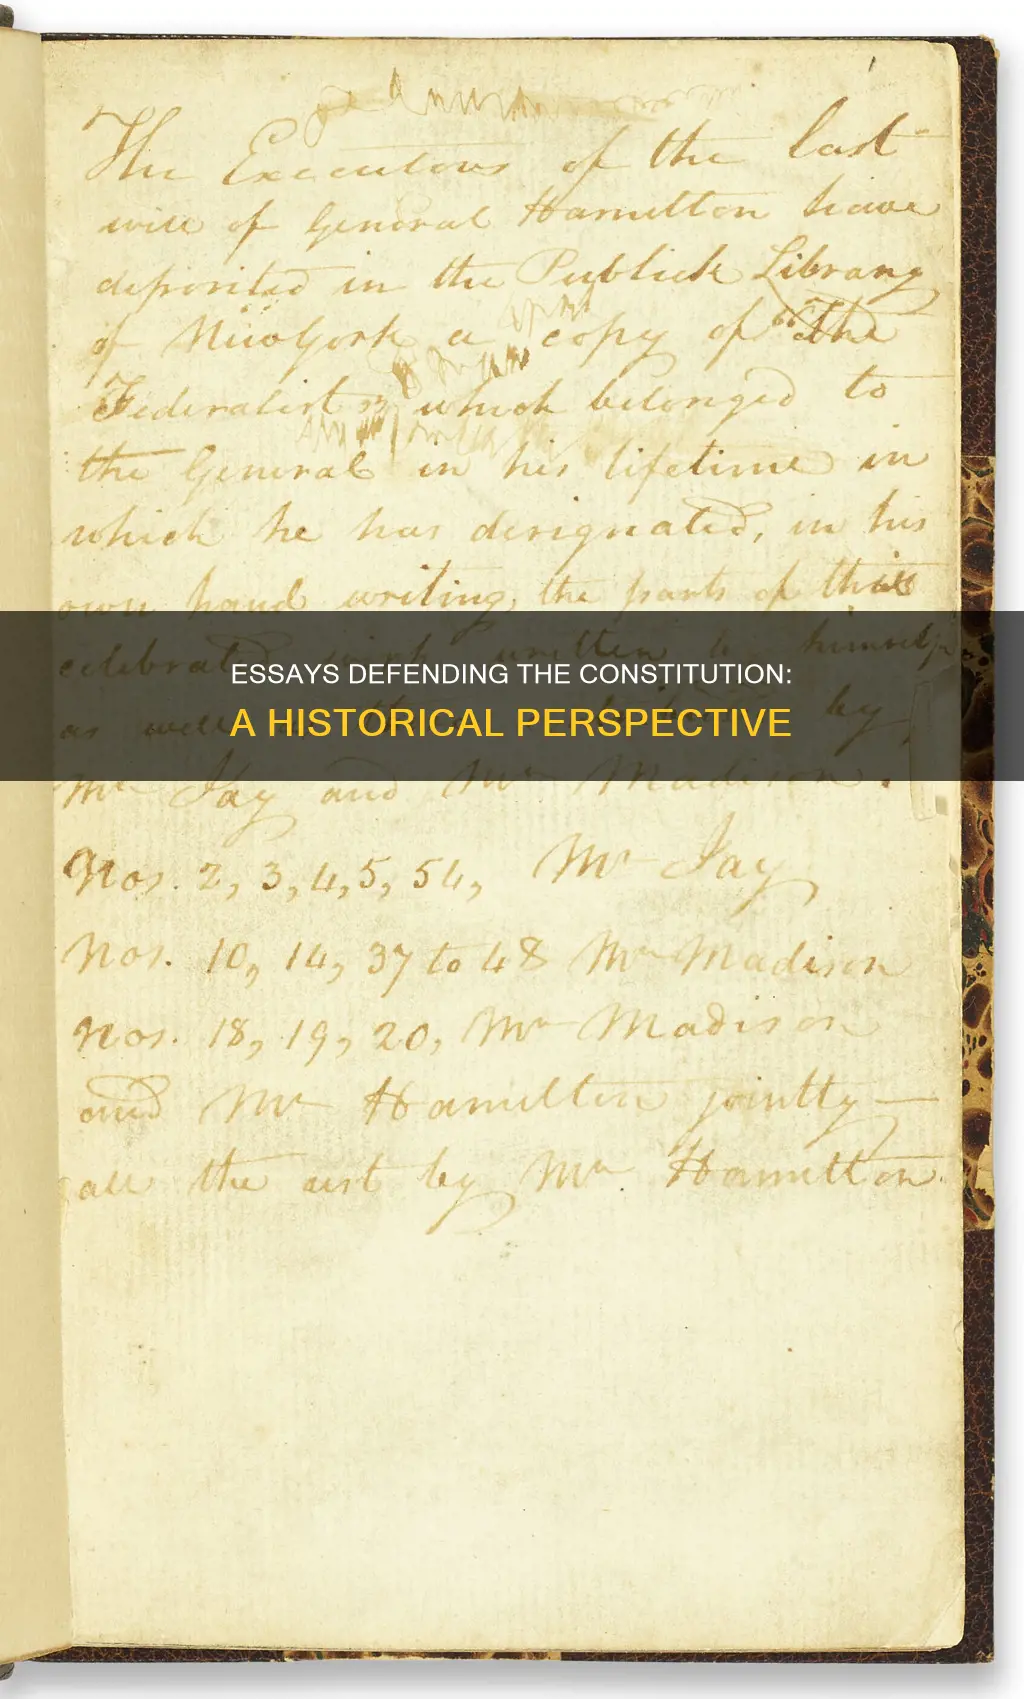 The Executors of the last
will of General Hamilton have
deposited in the Publick Library
of New York a copy of "The
Federalist" which belonged to
the General in his lifetime in
which he has designated, in his
own hand writing, the parts of that
celebrated work written by himself,
ESSAYS DEFENDING THE CONSTITUTION:
A HISTORICAL PERSPECTIVE
as well as by
Mr Jay and Mr Madison.
Nos. 2, 3, 4, 5, 54, Mr Jay
Nos. 10, 14, 37 to 48 Mr Madison
Nos. 18, 19, 20, Mr Madison
and Mr Hamilton jointly—
all the rest by Mr Hamilton.